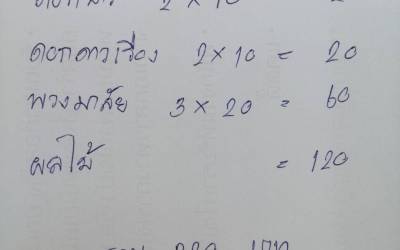 2 × 10
ดอกดาวเรือง 2 × 10 = 20
พวงมาลัย 3 × 20 = 60
ผลไม้ = 120